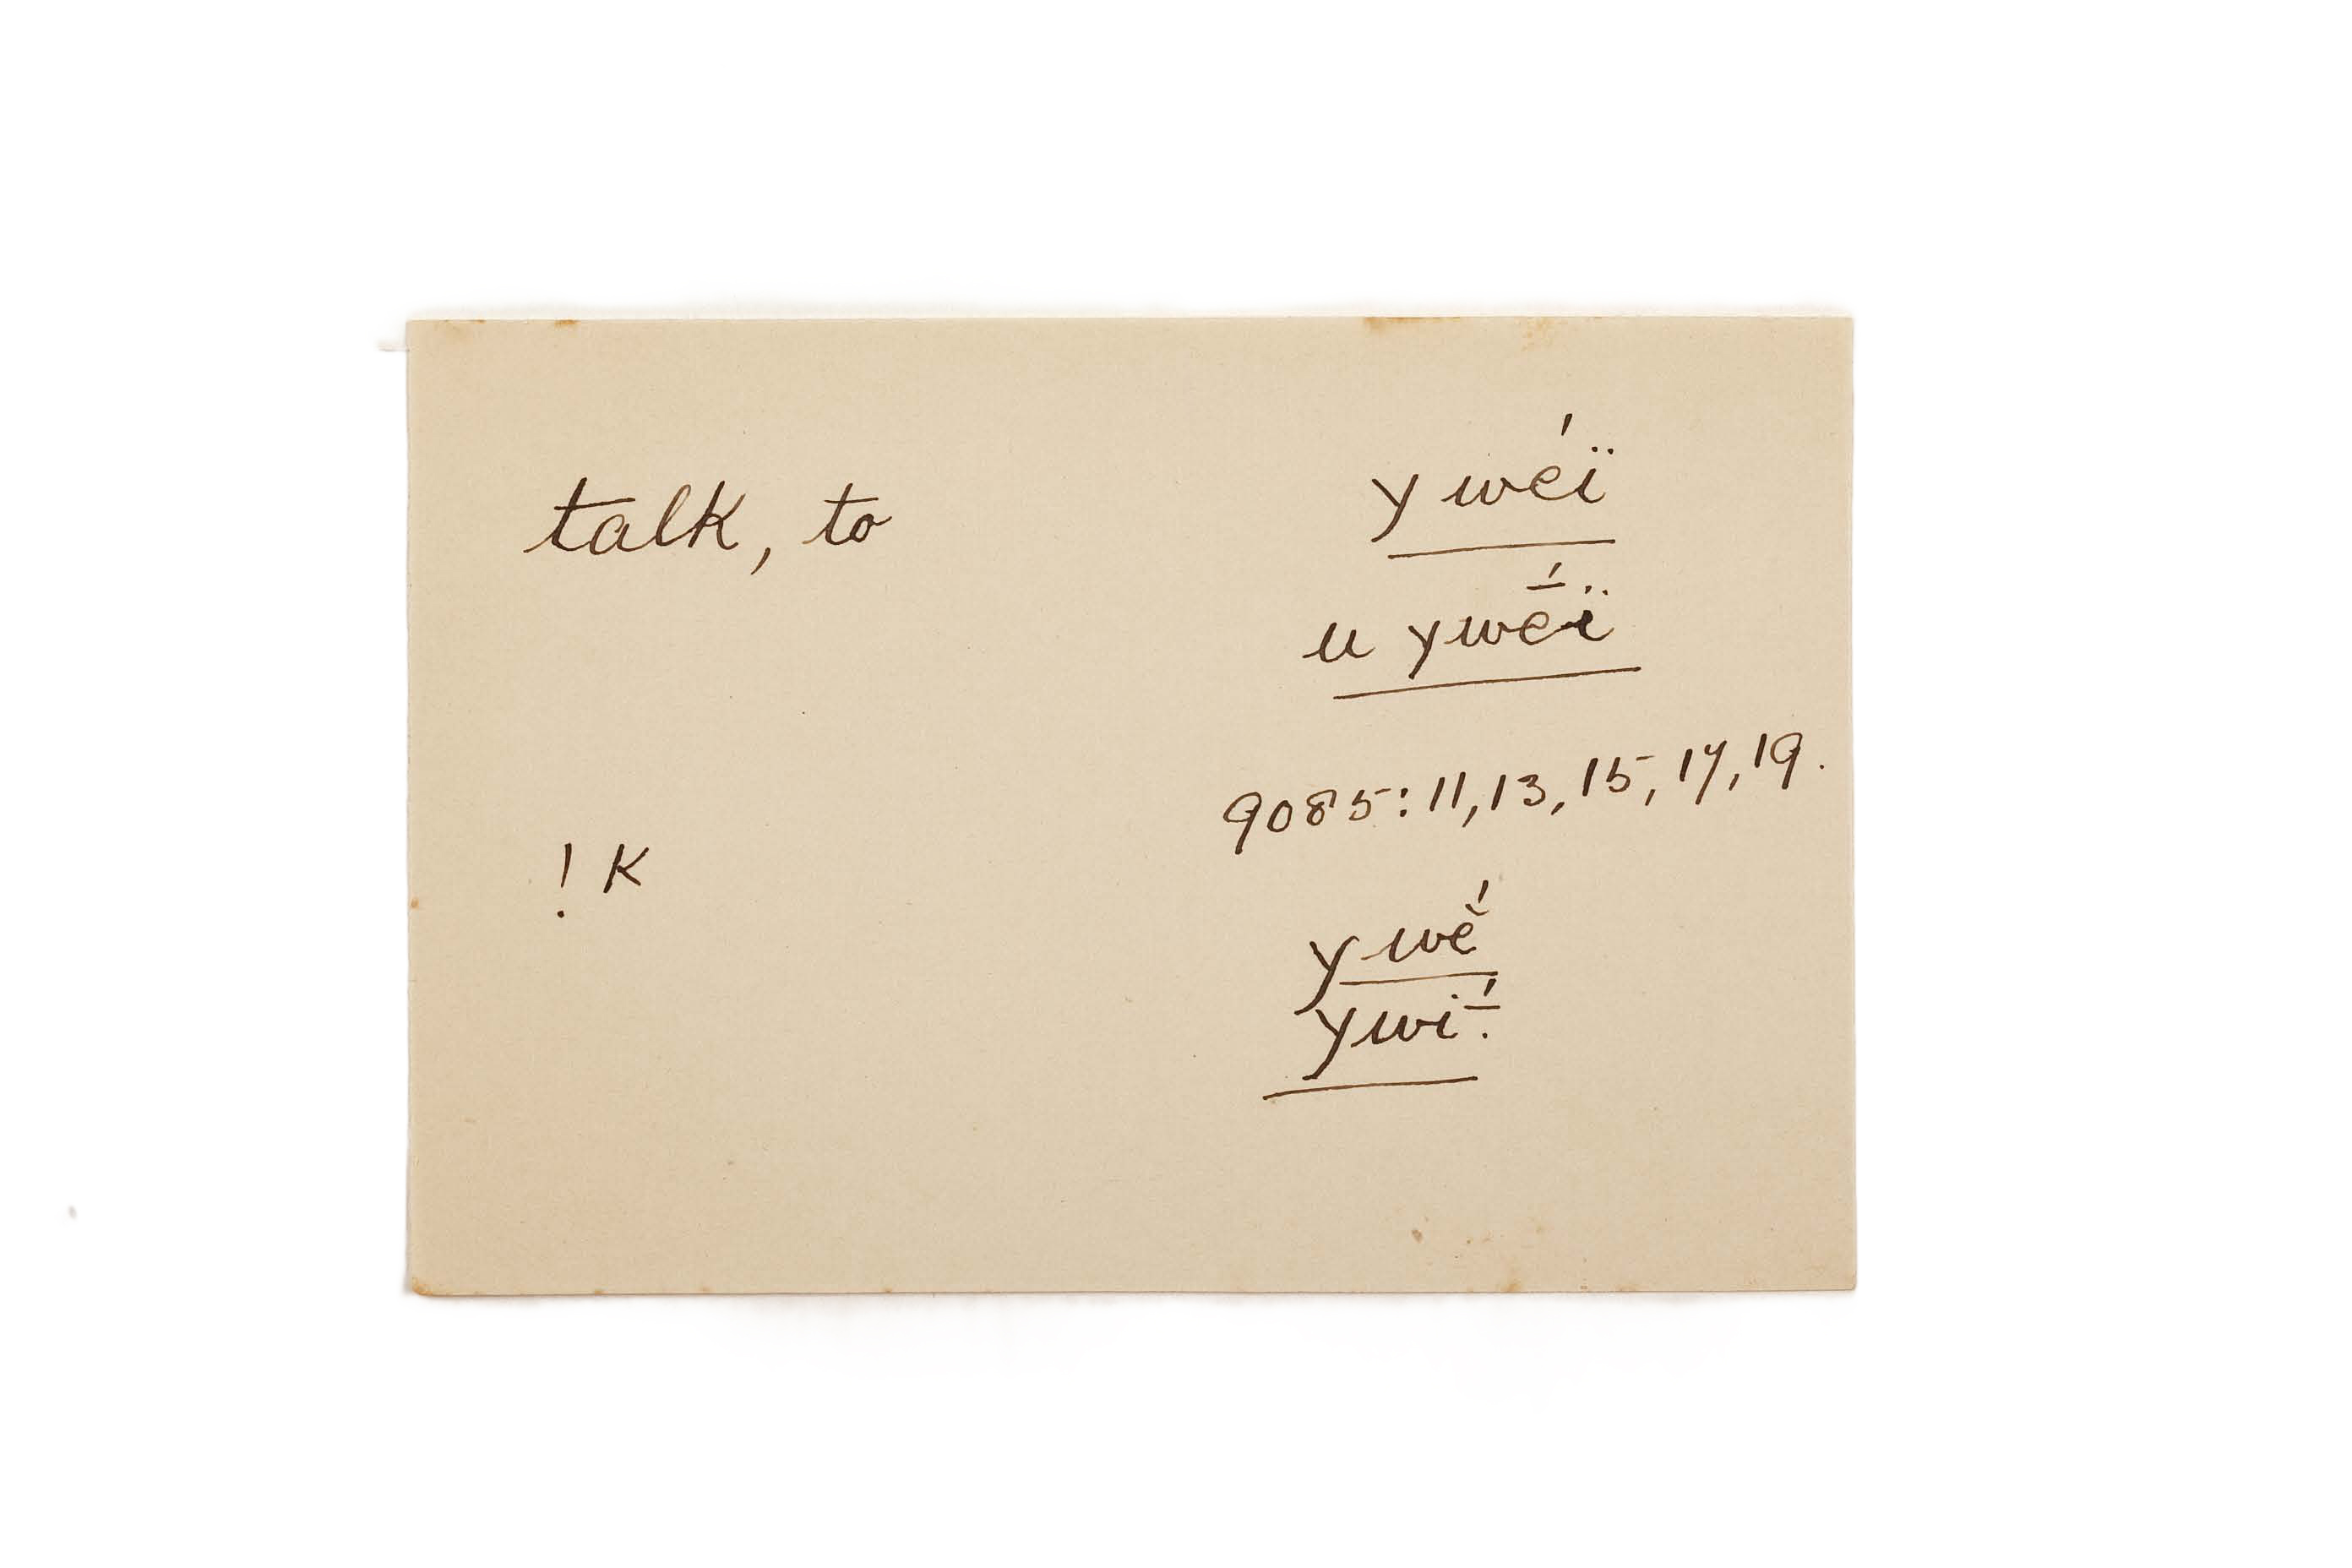 talk, to
ywéï
u ywḗï
9085: 11, 13, 15, 17, 19.
! k
ywĕ́
ywī́: